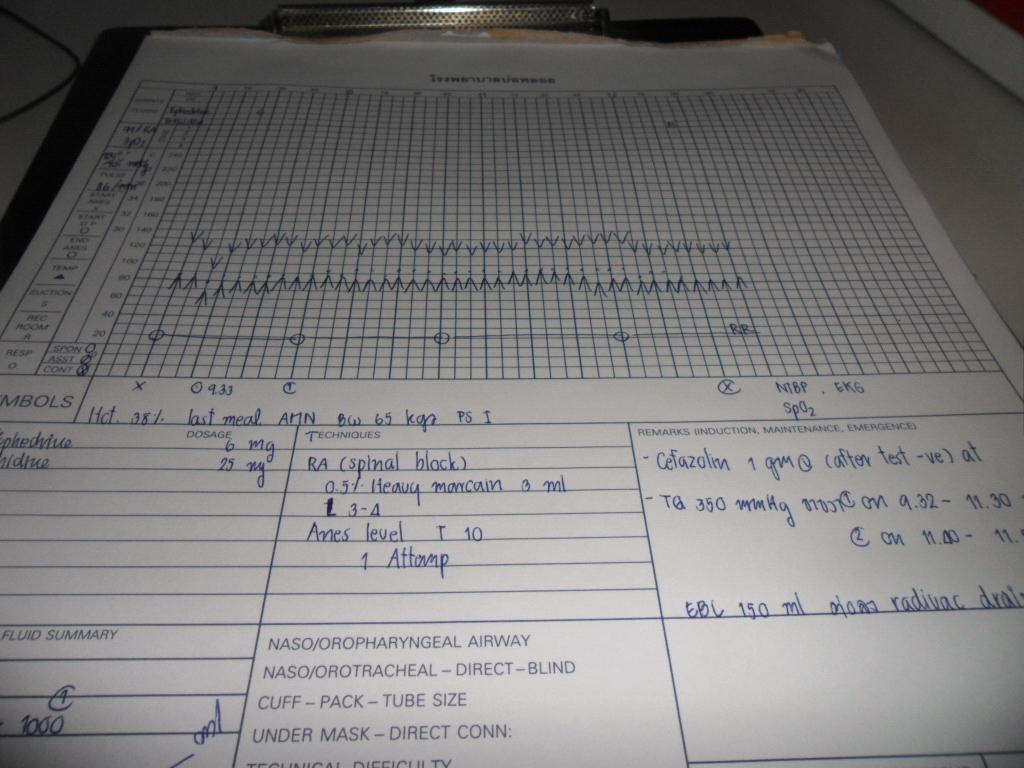 โรงพยาบาลบ่อพลอย
SpO2
PULSE
86/min
START ANES X
START OP
END ANES
TEMP
SUCTION S
REC ROOM R
RESP O
SPON
ASST
CONT
240
220
200
34 160
32 160
30 140
120
100
80
60
40
20
RR
X
9.33
1
X
NIBP . EKG
SpO2
MBOLS
Hct. 38% last meal AMN BW 65 kgs PS I
DOSAGE
phedrine 6 mg
hidine 25 mg
TECHNIQUES
RA (spinal block)
0.5% Heavy marcain 3 ml
L 3-4
Anes level T 10
1 Attamp
REMARKS (INDUCTION, MAINTENANCE, EMERGENCE)
- Cefazolin 1 gm (after test -ve) at
- TQ 350 mmHg 1 on 9.32 - 11.30
2 on 11.40 - 11.
EBL 150 ml radivac drai
FLUID SUMMARY
1
1000 ml
NASO/OROPHARYNGEAL AIRWAY
NASO/OROTRACHEAL – DIRECT – BLIND
CUFF – PACK – TUBE SIZE
UNDER MASK – DIRECT CONN:
TECHNICAL DIFFICULTY